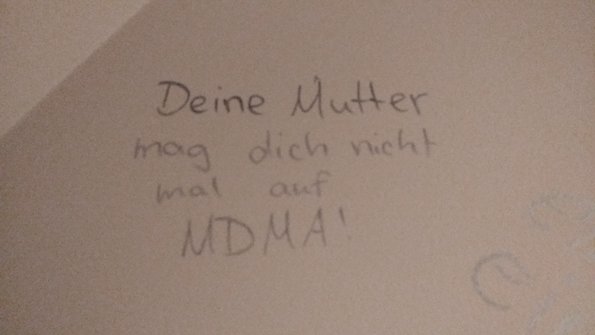 Deine Mutter
mag dich nicht
mal auf
MDMA!